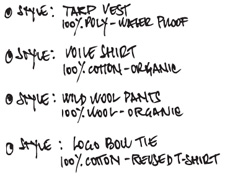 STYLE: TARP VEST
100% POLY-WATER PROOF
STYLE: VOILE SHIRT
100% COTTON-ORGANIC
STYLE: WILD WOOL PANTS
100% WOOL-ORGANIC
STYLE: LOGO BOW TIE
100% COTTON-REUSED T-SHIRT